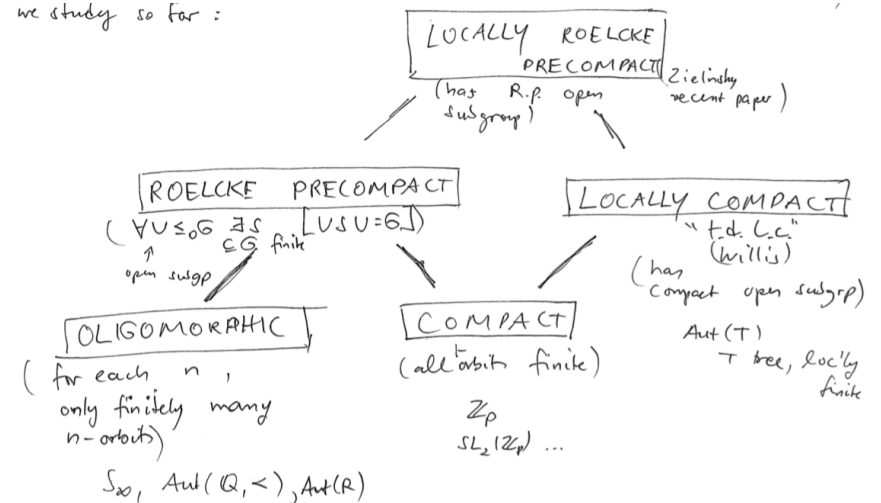 we study so far :
LOCALLY ROELCKE
PRECOMPACT
(has R.p. open
subgroup)
Zielinsky
recent paper)
ROELCKE PRECOMPACT
(∀U≤₀G ∃S [USU=G])
⊆G finite
↑
open subgp
LOCALLY COMPACT
"t.d. l.c."
(Willis)
(has
compact open subgrp)
Aut(T)
T tree, loc'ly
finite
OLIGOMORPHIC
(for each n,
only finitely many
n-orbits)
S∞, Aut(Q,<), Aut(R)
COMPACT
(all orbits finite)
ℤp
SL₂(ℤp) ...